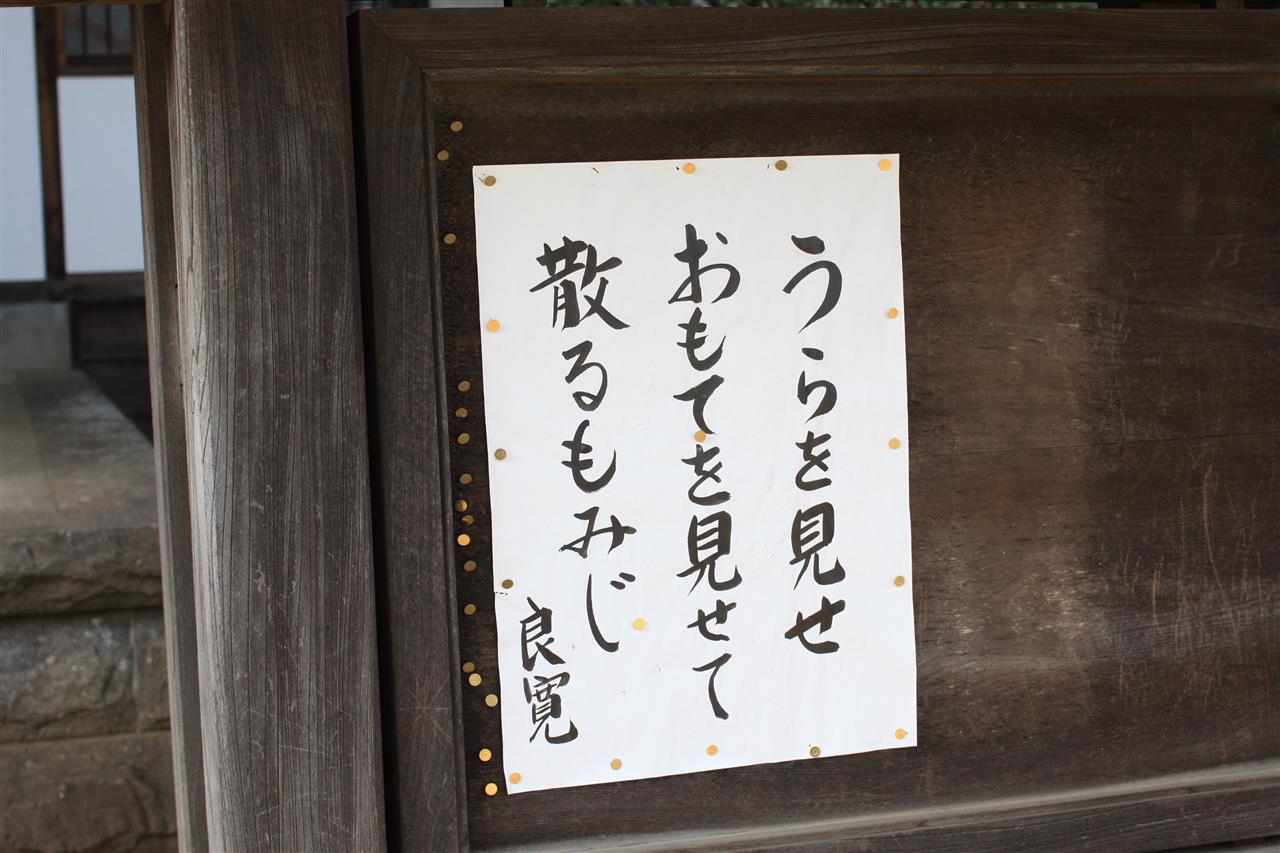 うらを見せ
おもてを見せて
散るもみじ
良寛